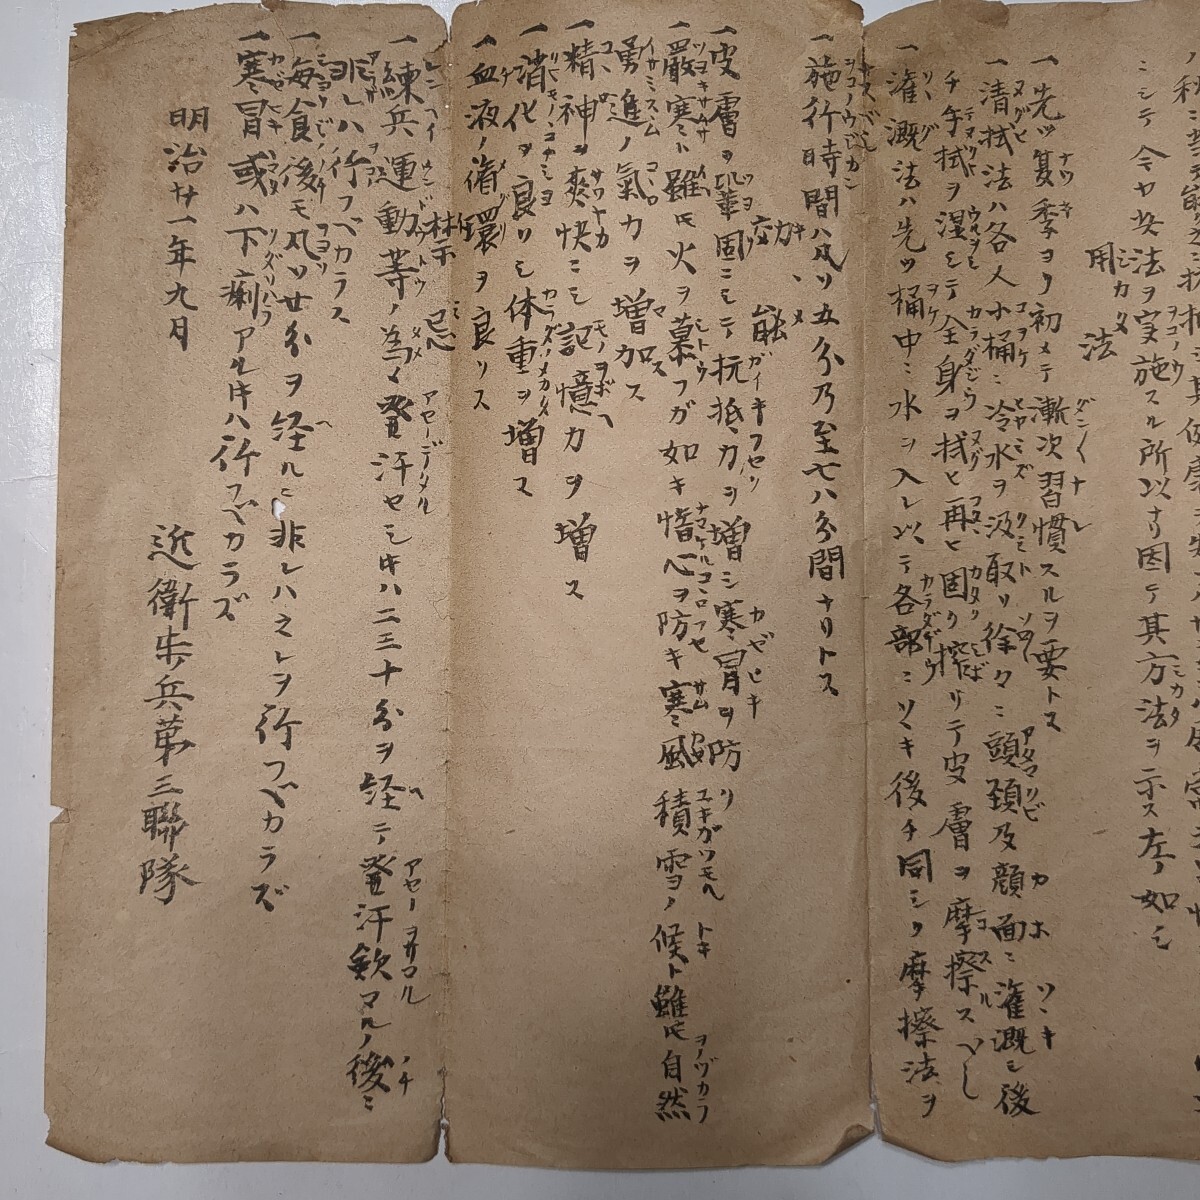 ニシテ今ヤ此法ヲ実施スル所以ナリ因テ其方法ヲ示ス左ノ如シ
用法
一先ツ夏季ヨリ初メテ漸次習慣スルヲ要トス
一清拭法ハ各人小桶ニ冷水ヲ汲取リ徐々ニ頭頚及顔面ニ灌漑シ後
チ手拭ヲ湿シテ全身ヲ拭ヒ再ヒ固ク搾リテ皮膚ヲ摩擦スヘし
一灌漑法ハ先ツ桶中ニ水ヲ入レ以テ各部ニソヽキ後チ同シク摩擦法ヲ
一施行時間ハ凡ソ五分乃至七八分間ナリトス
効能
一皮膚ヲ鞏固ニシテ抗抵力ヲ増シ寒冒ヲ防
一嚴寒ト雖モ火ヲ慕フガ如キ惰心ヲ防キ寒風積雪ノ候ト雖モ自然
勇進ノ氣力ヲ増加ス
一精神ヲ爽快ニシ記憶力ヲ増ス
一消化ヲ良クシ体重ヲ増ス
一血液ノ循環ヲ良クス
禁忌
一練兵運動等ノ為メ發汗セシ片ハ二三十分ヲ経テ發汗歛マルノ後ニ
非レハ行フベカラス
一毎食後モ凡ソ廿分ヲ経ルニ非レハ之レヲ行フベカラズ
一寒冒或ハ下痢アル片ハ行フベカラズ
明治廿一年九月
近衛歩兵第三聯隊